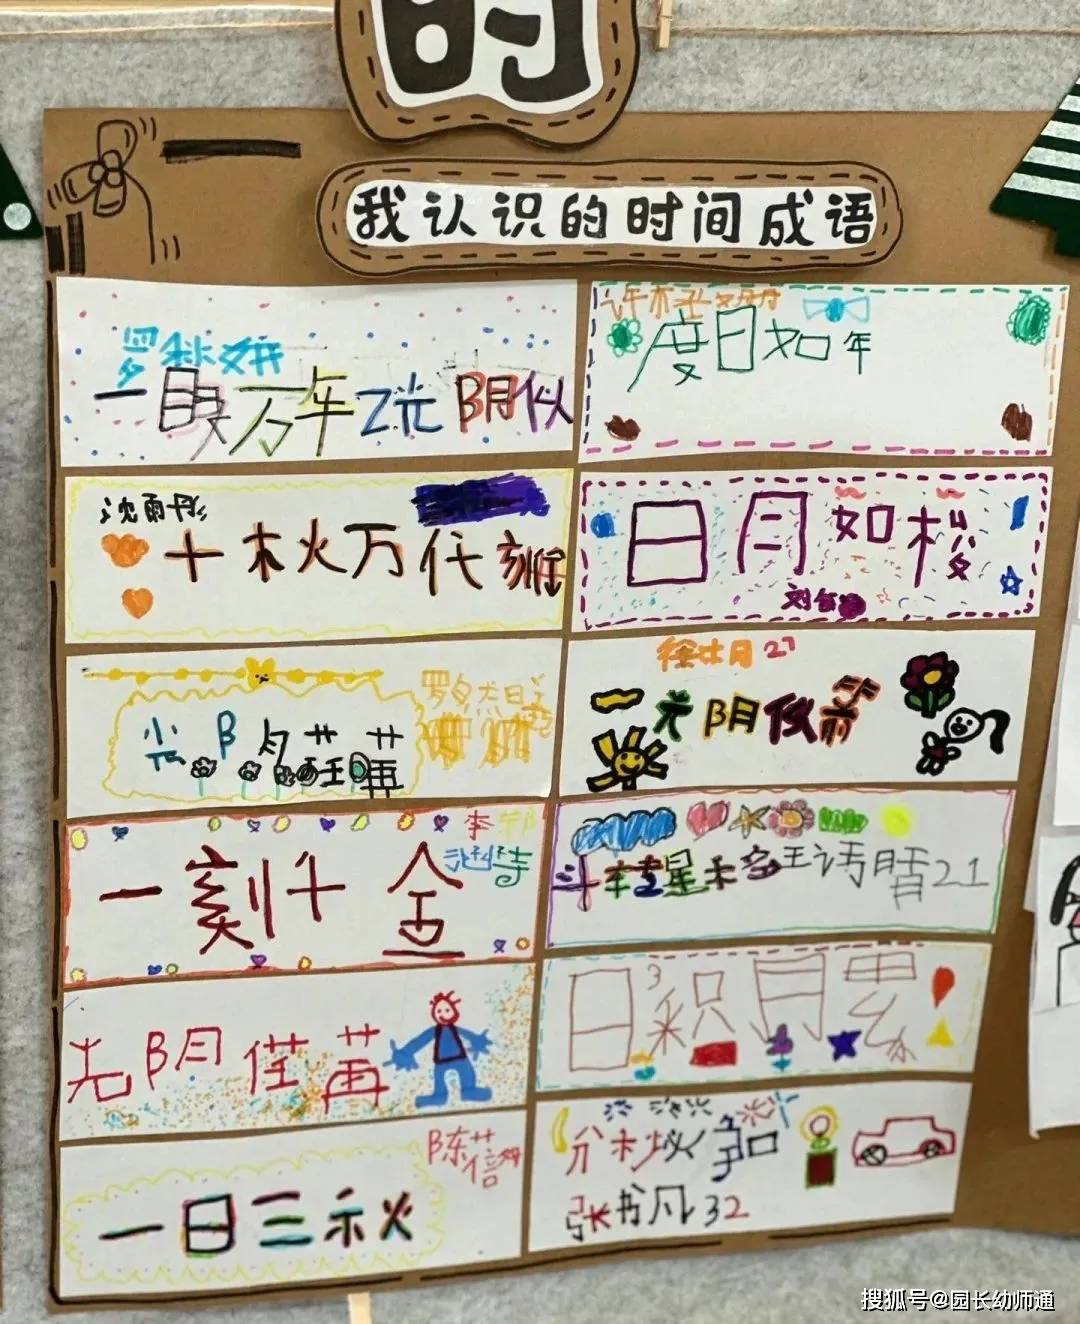 的
我认识的时间成语
罗秋妍
一眼万年 光阴似
度日如年
沈雨彤
千秋万代
日月如梭
刘
光阴荏苒
27
光阴似箭
李
一刻千金
斗转星移 王诗腈21
光阴荏苒
日积月累
陈蓓
一日三秋
分秒必争
张书凡32
搜狐号@园长幼师通